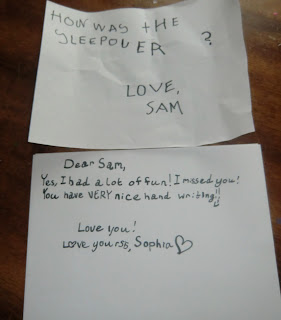 HOW WAS tHE
SLEEPOVER ?
LOVE,
SAM
Dear Sam,
Yes, I had a lot of fun! I missed you!
You have VERY nice hand writing!!
Love you!
Love yourss, Sophia♡